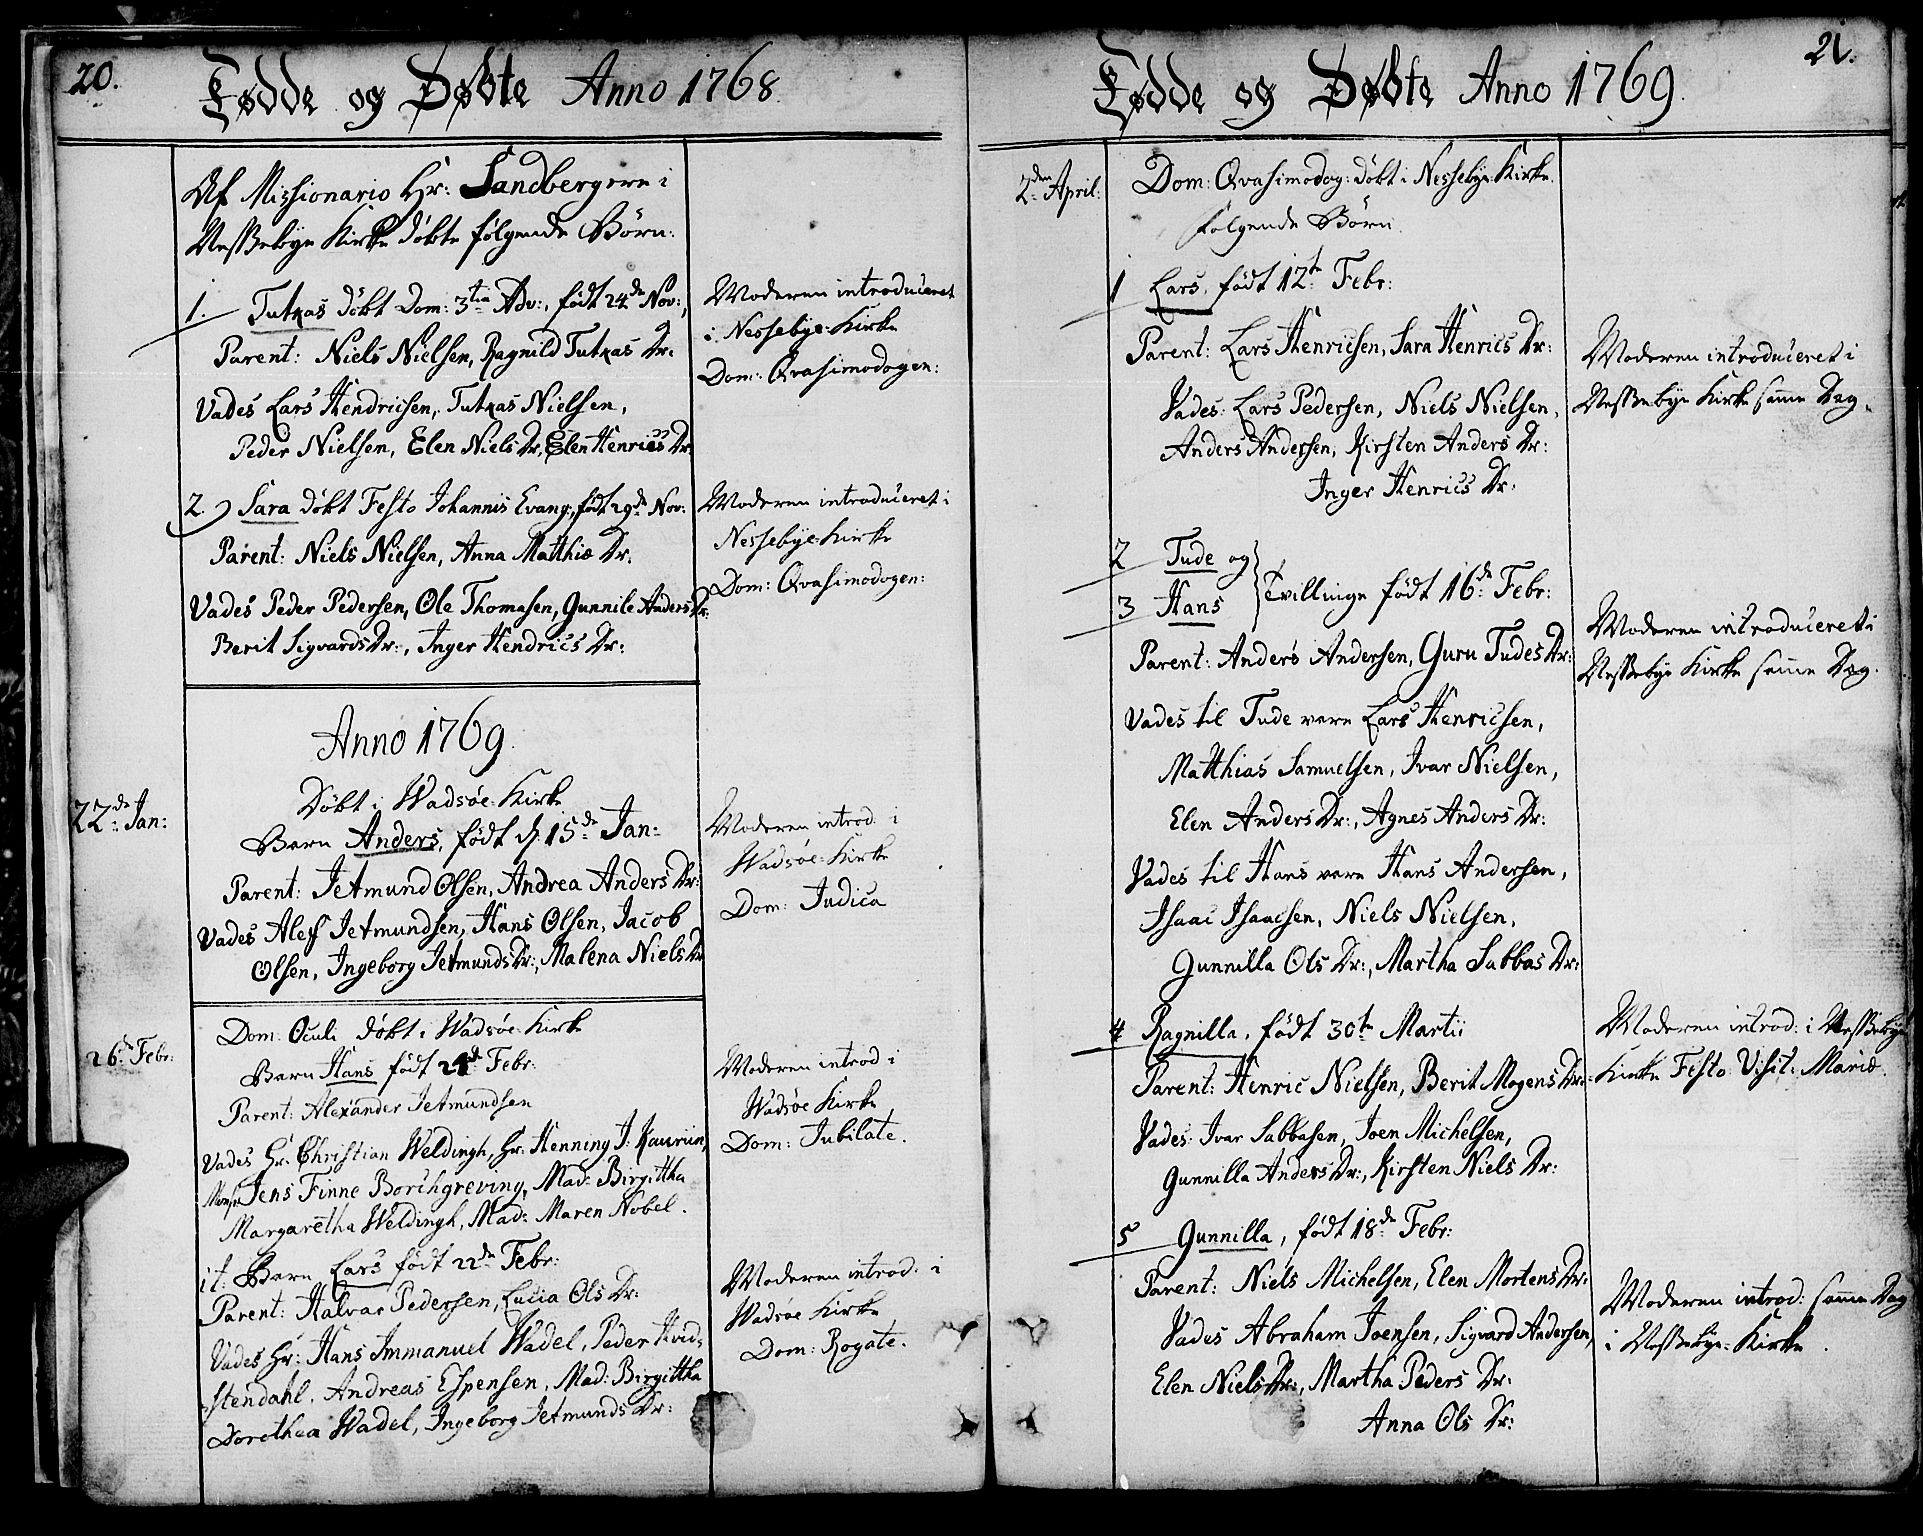 20.
Fødde og Døbte Anno 1768.
Af Missionario Hr: Sandberg ere i
Nessebye Kirke døbte følgende Børn:
1. Tutkas døbt Dom: 3tia Adv:, født 24de Nov:,
Parent: Niels Nielsen, Ragnild Tutkas Dr:
Vades Lars Hendricsen, Tutkas Nielsen,
Peder Nielsen, Elen Niels Dr:, Elen Henrics Dr:
Moderen introduceret
i Nessebye-Kirke
Dom: Qvasimodogen:
2. Sara døbt Festo Johannis Evang:, født 29de Nov:
Parent: Niels Nielsen, Anna Matthiæ Dr:
Vades Peder Pedersen, Ole Thomasen, Gunnile Anders Dr:
Berit Sigvards Dr:, Inger Hendrics Dr:
Moderen introduceret i
Nessebye-Kirke
Dom: Qvasimodogen:
Anno 1769.
22de Jan:
Døbt i Wadsøe-Kirke
Barn Anders, født d. 15de Jan:
Parent: Jetmund Olsen, Andrea Anders Dr:
Vades Alef Jetmundsen, Hans Olsen, Jacob
Olsen, Ingeborg Jetmunds Dr:, Malena Niels Dr
Moderen introd: i
Wadsøe-Kirke
Dom: Judica
26de Febr:
Dom: Oculi døbt i Wadsøe Kirke
Barn Hans født 24de Febr:
Parent: Alexander Jetmundsen
Vades Hr. Christian Weldingh, Hr. Henning J: Kaurin,
Monsr Jens Finne Borchgreving, Mad: Birgittha
Margaretha Weldingh, Mad: Maren Nobel.
Moderen introd i
Wadsøe Kirke
Dom: Jubilate.
it: Barn Lars født 22de Febr:
Parent: Halvar Pedersen, Lucia Ols Dr:
Vades Hr: Hans Immanuel Wadel, Peder Hvid-
stendahl, Andreas Espensen, Mad: Birgittha
Dorothea Wadel, Ingeborg Jetmunds Dr:
Moderen introd: i
Wadsøe Kirke
Dom: Rogate.
21.
Fødde og Døbte Anno 1769.
2den April:
Dom: Qvasimodog: døbt i Nessebye-Kirke
følgende Børn.
1 Lars, født 12te Febr:
Parent: Lars Henricsen, Sara Henrics Dr:
Vades: Lars Pedersen, Niels Nielsen,
Anders Andersen, Kirsten Anders Dr:
Inger Henrics Dr:
Moderen introduceret i
Nessebye Kirke samme Dag.
2 Tude og
3 Hans
Tvillinge født 16de Febr:
Parent: Anders Andersen, Guru Tudes Dr:
Vades til Tude vare Lars Henricsen,
Matthias Samuelsen, Ivar Nielsen,
Elen Anders Dr:, Agnes Anders Dr:
Vades til Hans vare Hans Andersen,
Isaac Isaacsen, Niels Nielsen,
Gunnilla Ols Dr:, Martha Sabbas Dr:
Moderen introduceret i
Nessebye Kirke samme Dag.
4 Ragnilla, født 30te Martii
Parent: Henric Nielsen, Berit Mogens Dr:
Vades: Ivar Sabbasen, Joen Michelsen,
Gunnilla Anders Dr:, Kirsten Niels Dr:
Moderen introd: i Nessebye
Kirke Festo Visit: Mariæ.
5 Gunnilla, født 18de Febr:
Parent: Niels Michelsen, Elen Mortens Dr:
Vades Abraham Joensen, Sigvard Andersen,
Elen Niels Dr:, Martha Peders Dr:
Anna Ols Dr:
Moderen introd: samme Dag
i Nessebye-Kirke.